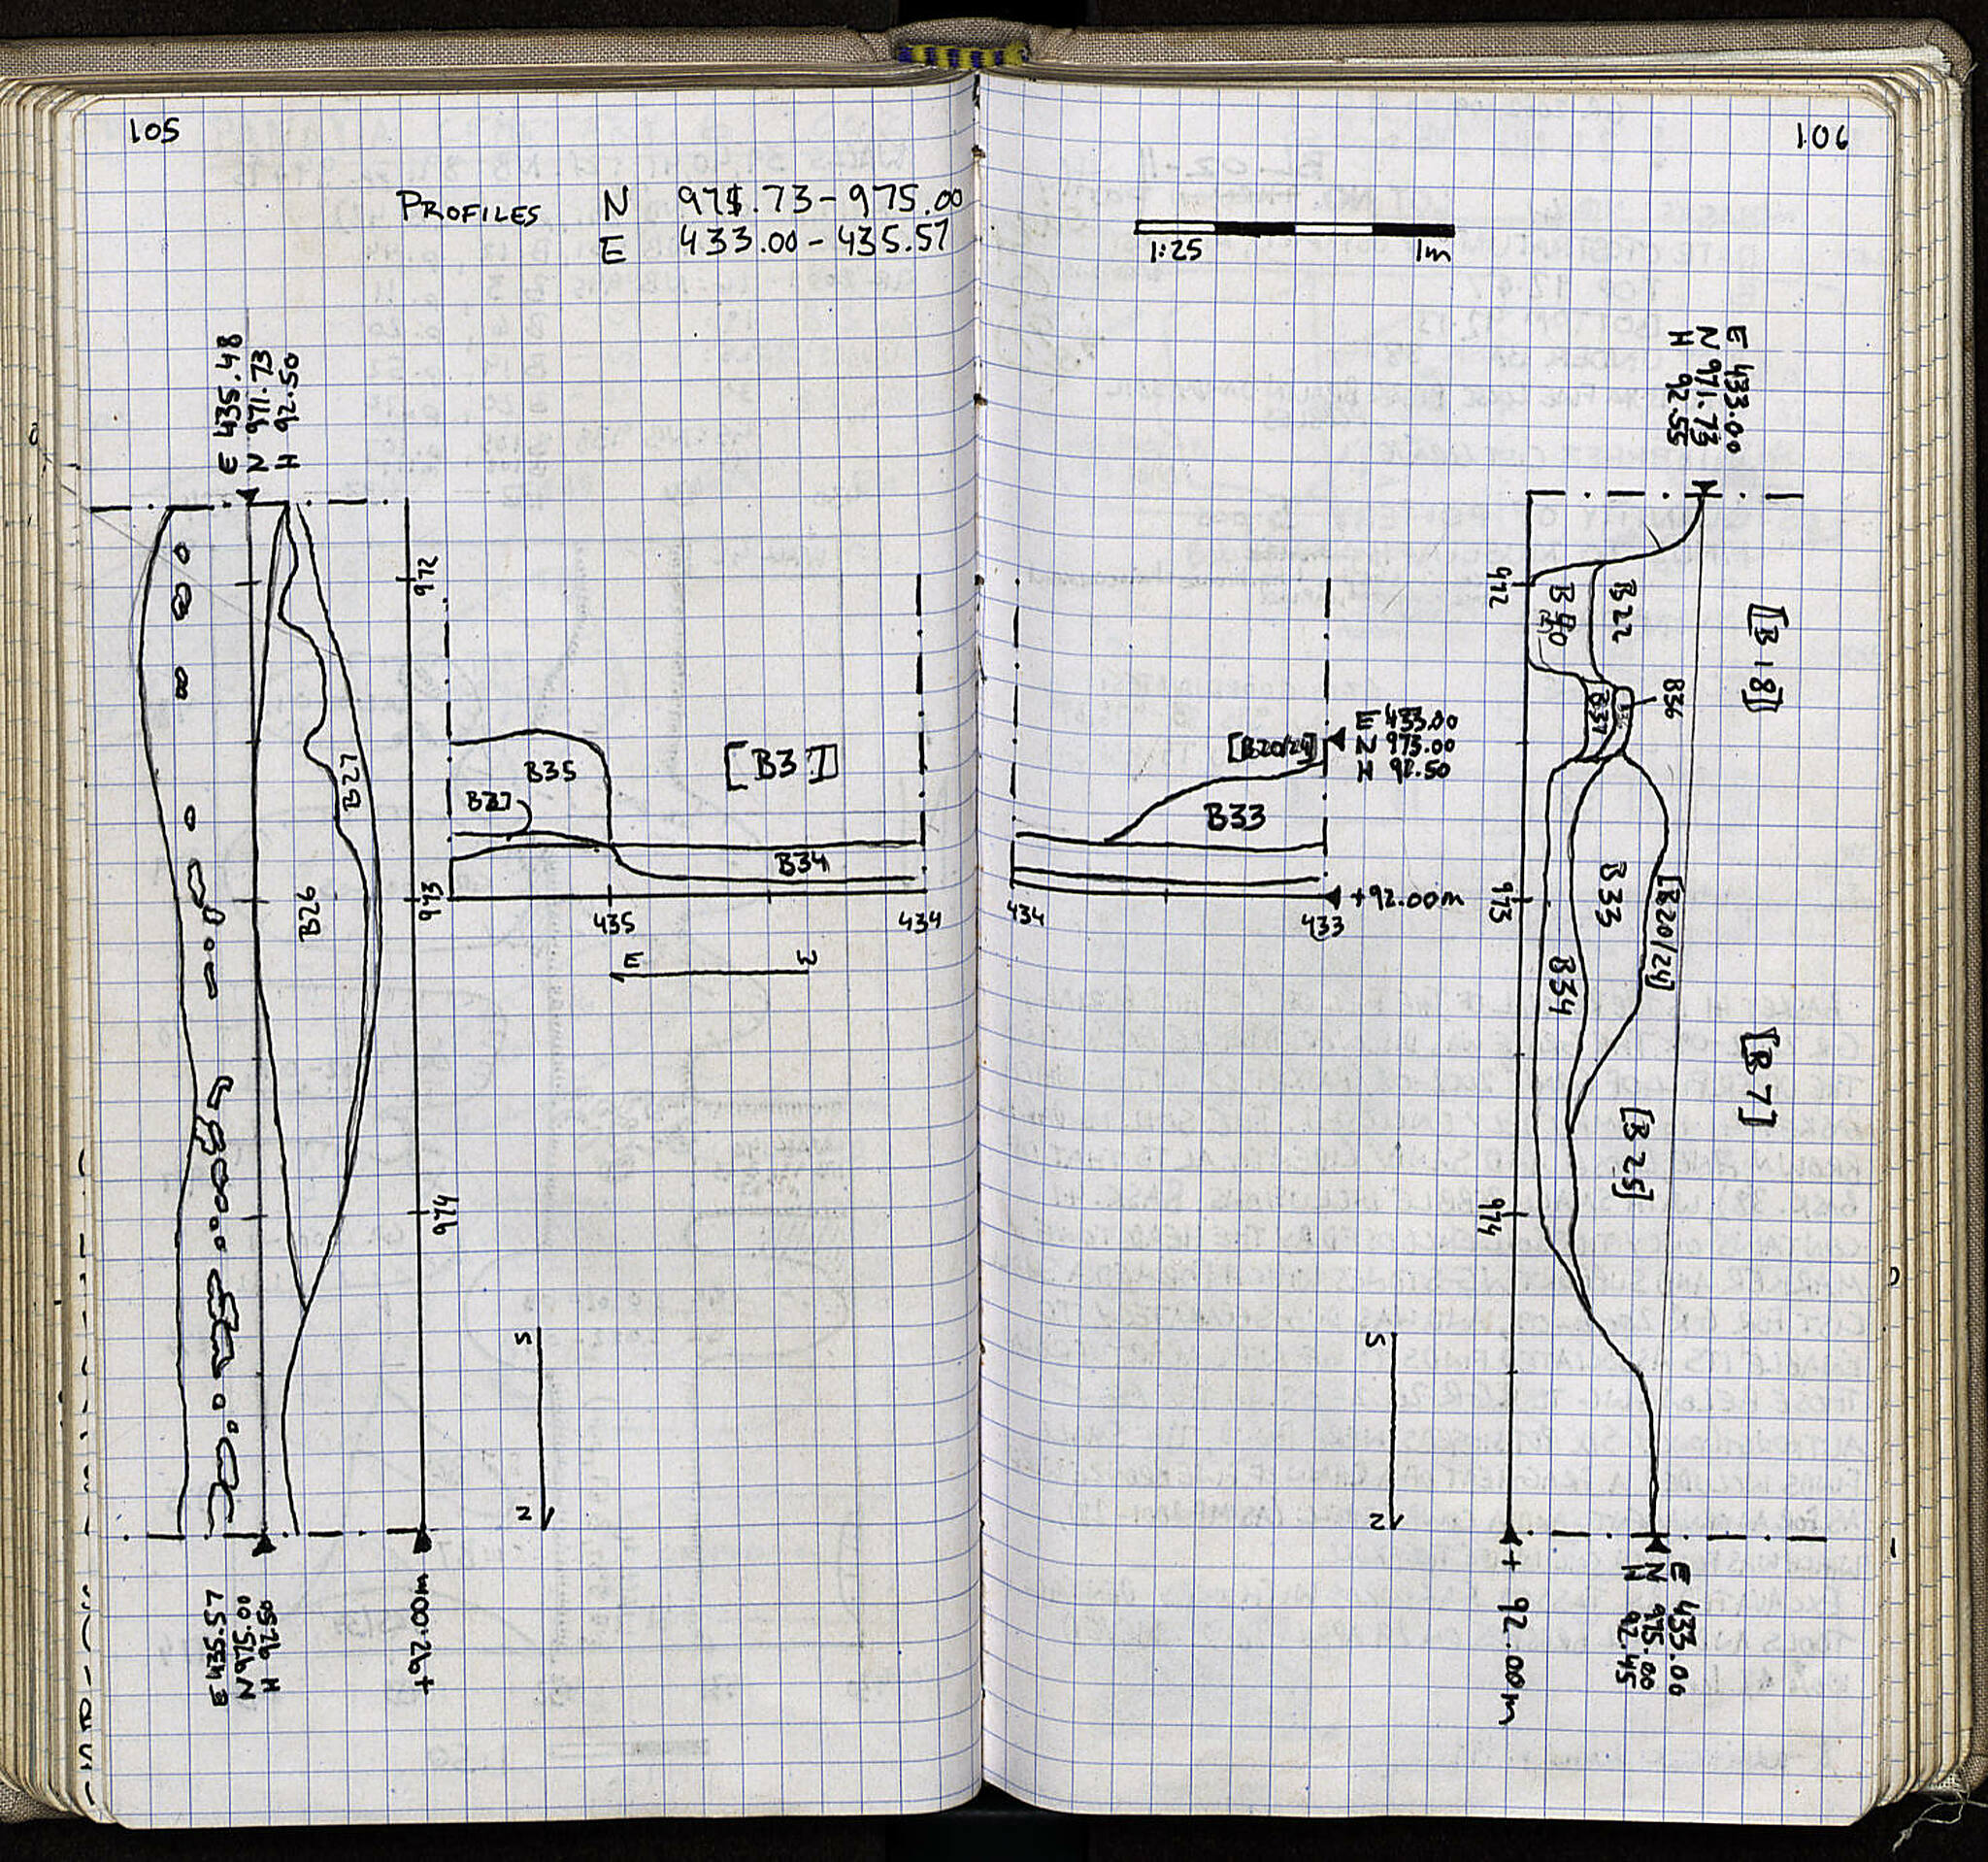 105
PROFILES N 971.73-975.00
E 433.00-435.57
E 435.48
N 971.73
H 92.50
972
973
974
B27
B26
B35
B27
[B31]
B34
435
434
E W
S N
E 435.57
N 975.00
H 92.50
+92.00m
106
1:25 1m
E 433.00
N 971.73
H 92.55
[B20/24]
E 433.00
N 973.00
H 92.50
B33
434
433
+92.00m
972
973
974
B22
B36
B37
[B18]
B33
[B20/24]
B34
[B7]
[B25]
S N
+ 92.00m
E 433.00
N 975.00
H 92.45